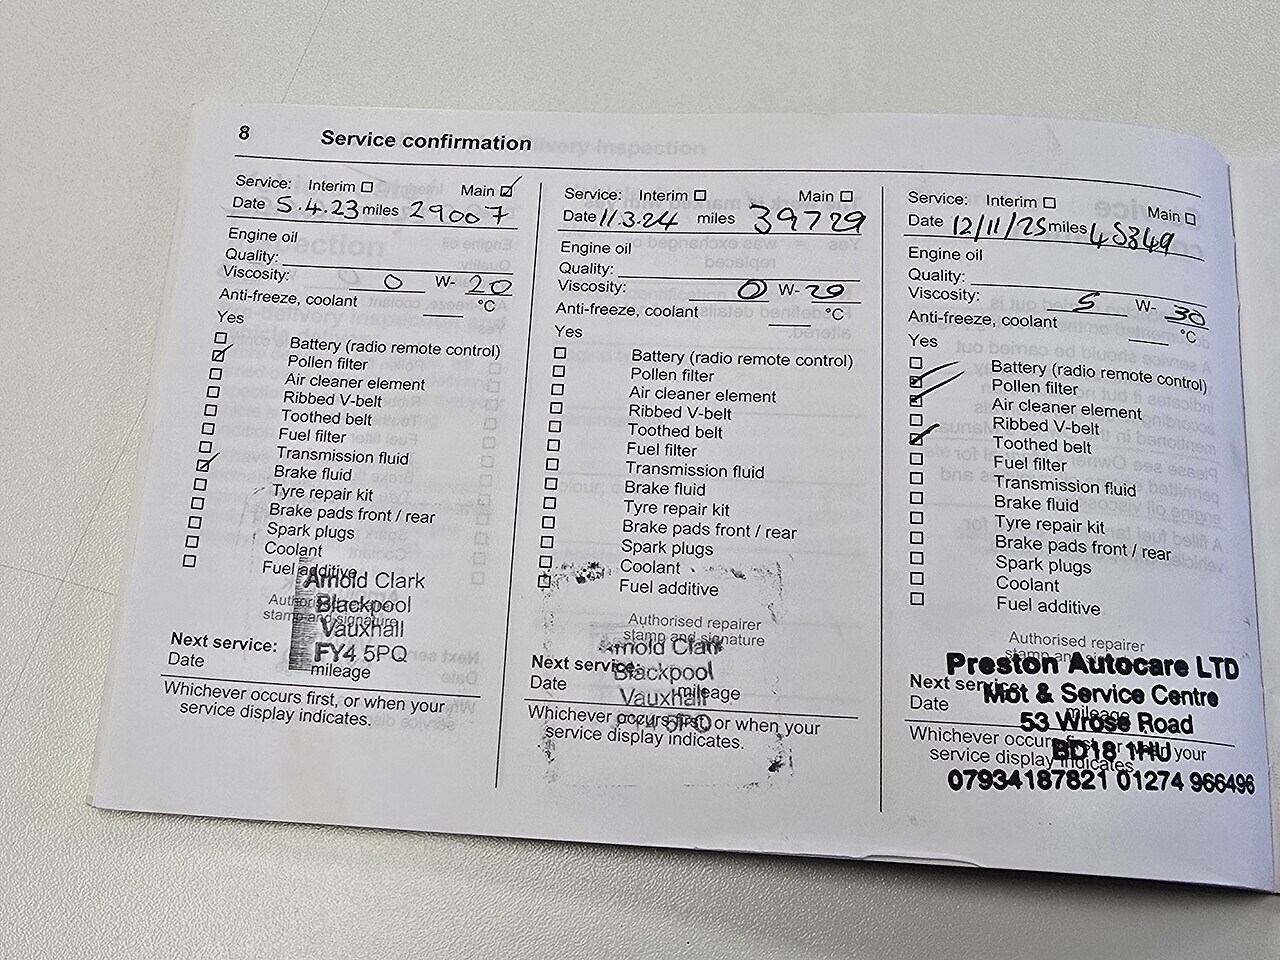 8 Service confirmation
Service: Interim ☐ Main ☑
Date 5.4.23 miles 29007
Engine oil
Quality:
Viscosity: 0 W- 20
Anti-freeze, coolant °C
Yes
Battery (radio remote control)
Pollen filter
Air cleaner element
Ribbed V-belt
Toothed belt
Fuel filter
Transmission fluid
Brake fluid
Tyre repair kit
Brake pads front / rear
Spark plugs
Coolant
Fuel additive
Authorised repairer
stamp and signature
Arnold Clark
Blackpool
Vauxhall
FY4 5PQ
Next service:
Date mileage
Whichever occurs first, or when your
service display indicates.
Service: Interim ☐ Main ☐
Date 11.3.24 miles 39729
Engine oil
Quality:
Viscosity: 0 W- 20
Anti-freeze, coolant °C
Yes
Battery (radio remote control)
Pollen filter
Air cleaner element
Ribbed V-belt
Toothed belt
Fuel filter
Transmission fluid
Brake fluid
Tyre repair kit
Brake pads front / rear
Spark plugs
Coolant
Fuel additive
Authorised repairer
stamp and signature
Arnold Clark
Blackpool
Vauxhall
FY4 5PQ
Next service:
Date mileage
Whichever occurs first, or when your
service display indicates.
Service: Interim ☐ Main ☐
Date 12/11/25 miles 45349
Engine oil
Quality:
Viscosity: 5 W- 30
Anti-freeze, coolant °C
Yes
Battery (radio remote control)
Pollen filter
Air cleaner element
Ribbed V-belt
Toothed belt
Fuel filter
Transmission fluid
Brake fluid
Tyre repair kit
Brake pads front / rear
Spark plugs
Coolant
Fuel additive
Authorised repairer
stamp and
Preston Autocare LTD
Mot & Service Centre
53 Wrose Road
BD18 1HU
07934187821 01274 966496
Next service:
Date mileage
Whichever occurs first, or when your
service display indicates.